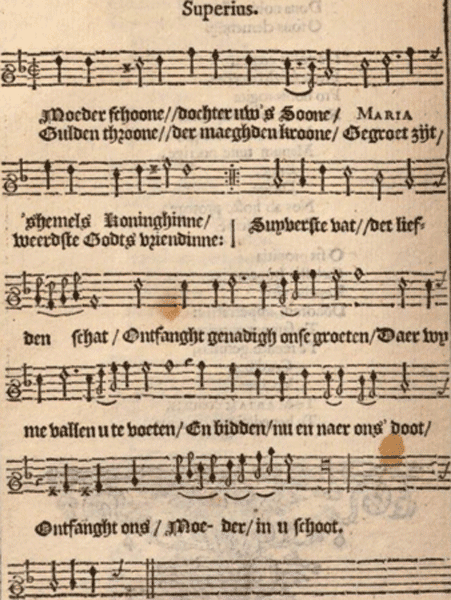 Superius.
Moeder schoone//dochter uw's Soone/ MARIA
Gulden throone//der maeghden kroone/ Gegroet zijt/
'shemels Koninghinne/ Suyverste vat//det lief-
weerdste Godts vriendinne:
den schat/ Ontfanght genadigh onse groeten/Daer wy
me vallen u te voeten/ En bidden/nu en naer ons' doot/
Ontfanght ons/ Moe- der/in u schoot.